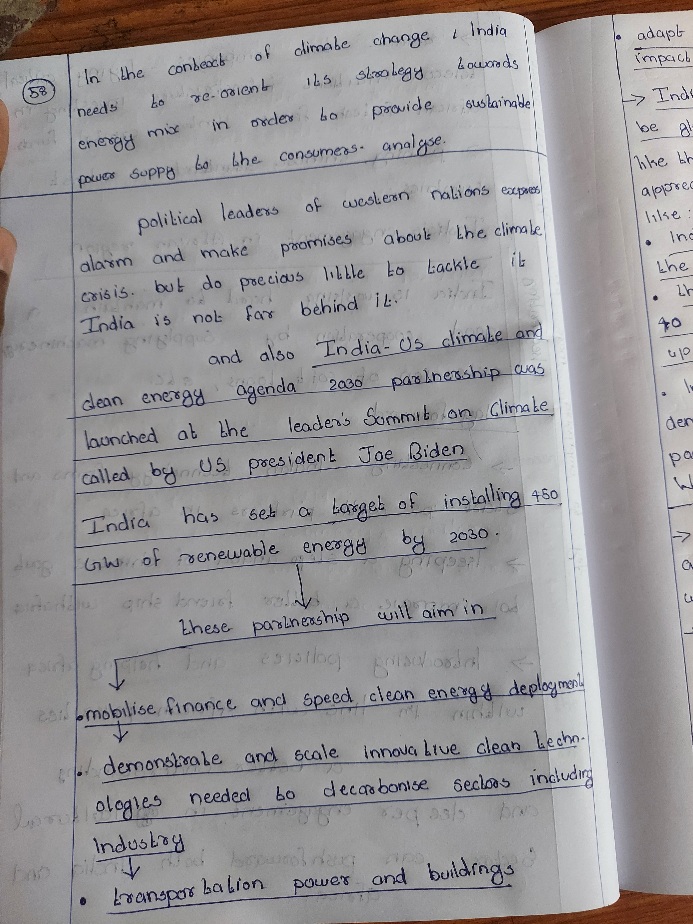 58
In the context of climate change, India
needs to re-orient its strategy towards
energy mix in order to provide sustainable
power suppy to the consumers. analyse.
political leaders of western nations express
alarm and make promises about the climate
crisis. but do precious little to tackle it
India is not far behind it.
and also India-US climate and
clean energy agenda 2030 partnership was
launched at the leader's Summit on Climate
called by US president Joe Biden
India has set a target of installing 450
GW of renewable energy by 2030.
these partnership will aim in
• mobilise finance and speed clean energy deployment
• demonstrate and scale innovative clean techn-
ologies needed to decarbonise sectors including
Industry
• transportation power and buildings
• adapt
impact
→ Ind
be gl
like th
apprec
like:
• Ind
the
• th
40
up
• I
den
pa
W
→
a